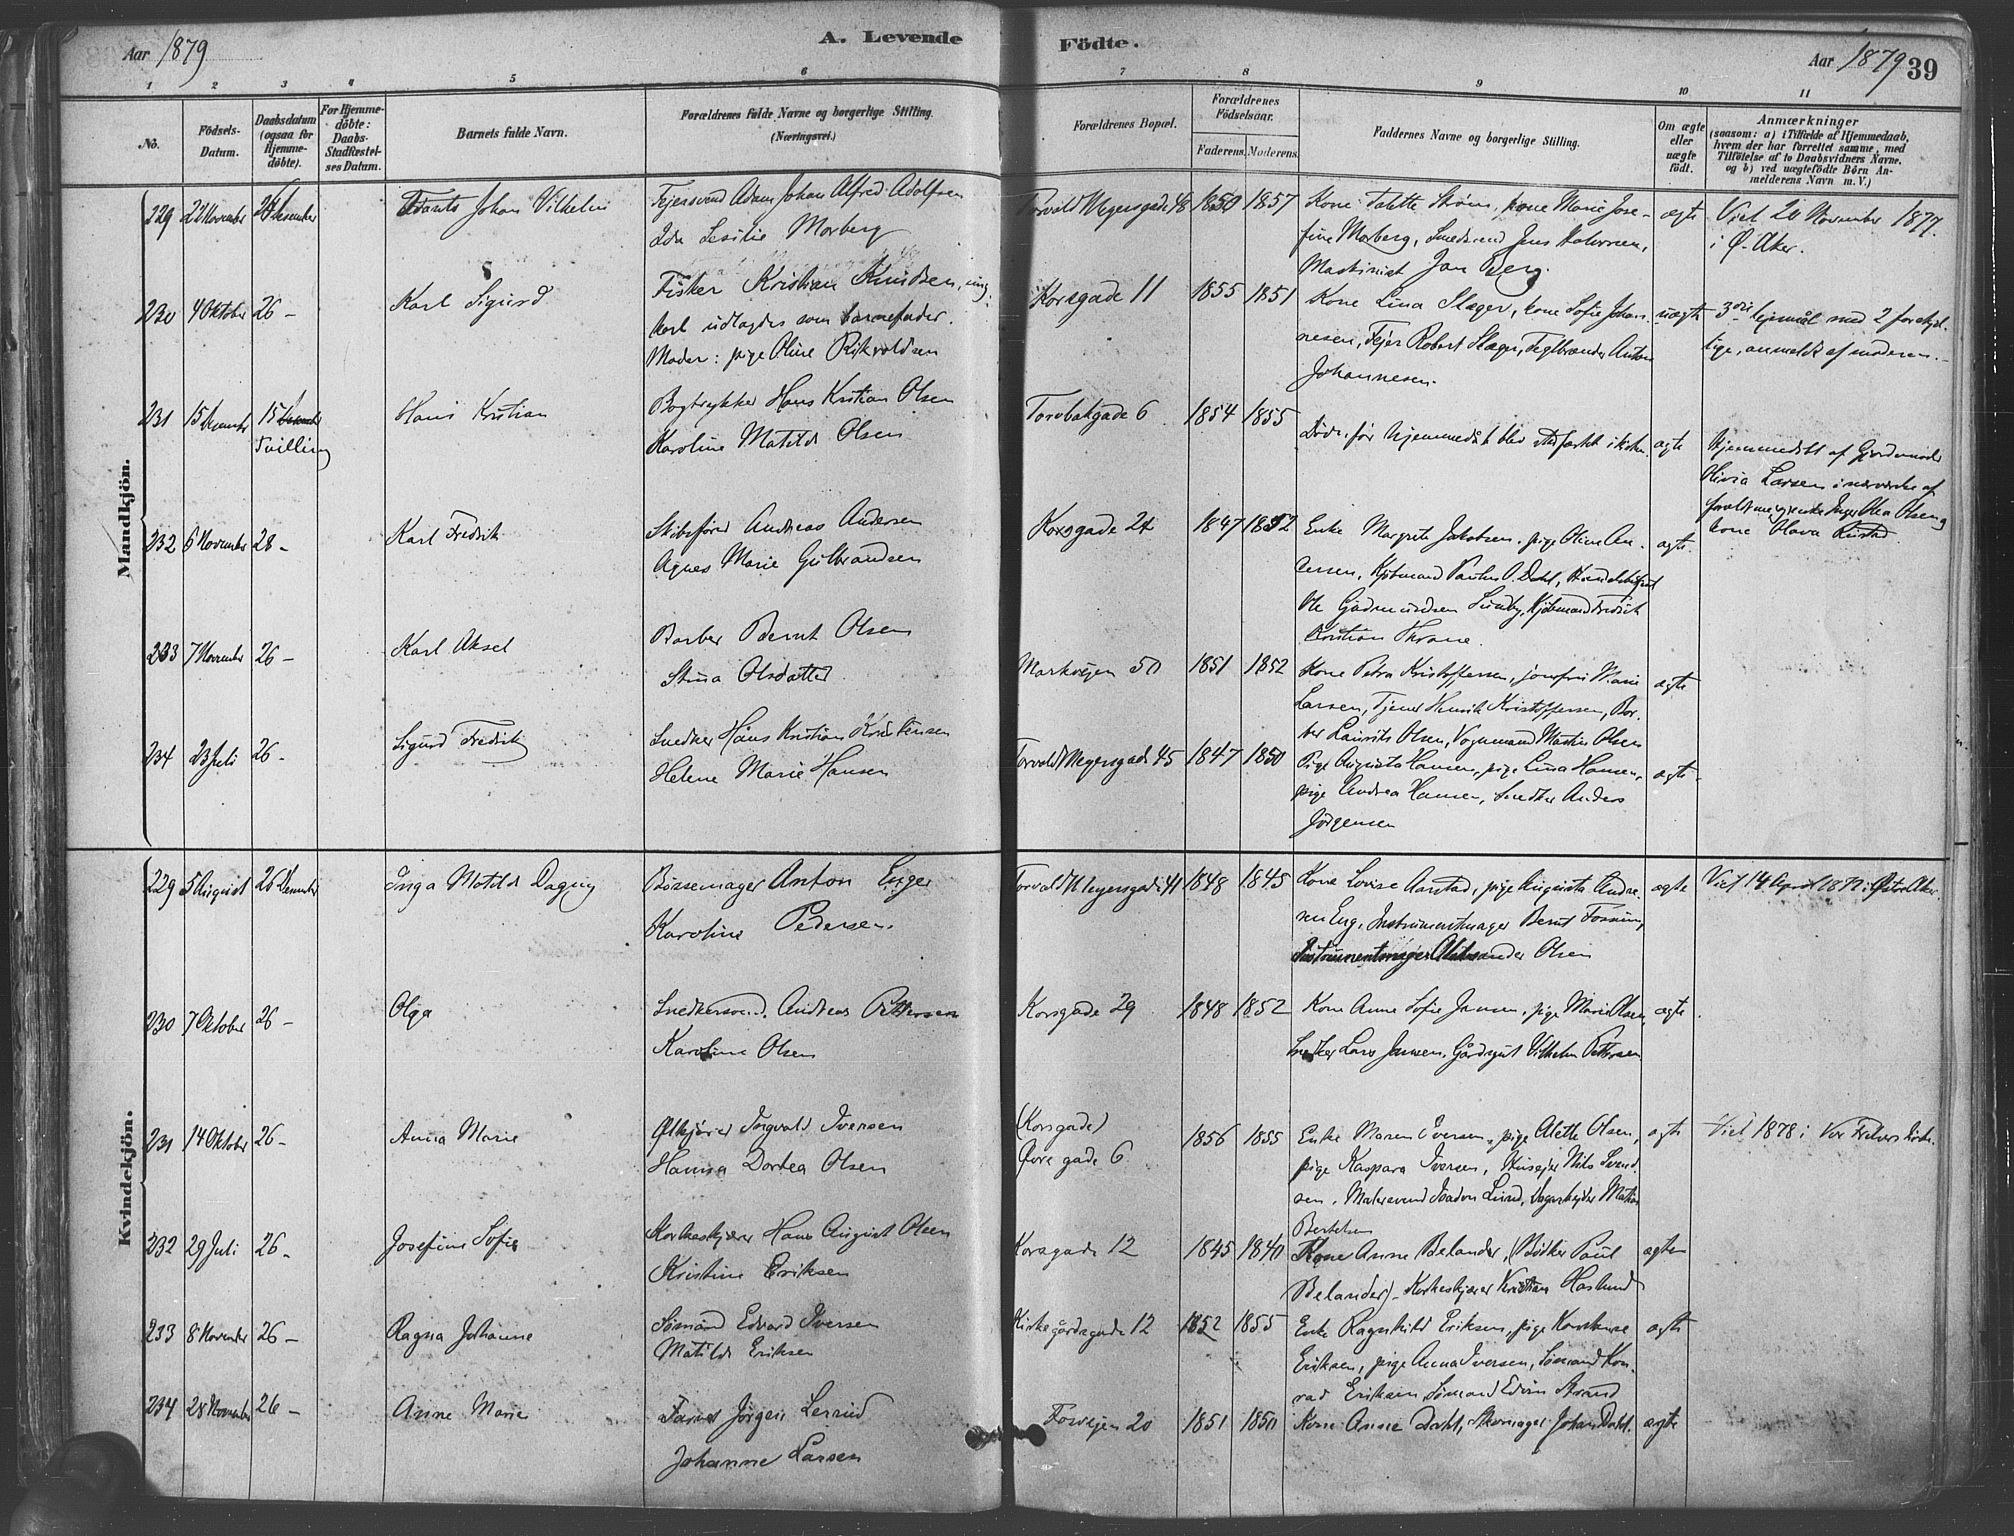 Aar 1879
A. Levende
Födte.
Aar 1879
39
1 2 3 4 5 6 7 8 9 10 11
No.
Födsels-
Datum.
Daabsdatum
(ogsaa for
Hjemme-
döbte).
For Hjemme-
döbte:
Daabs-
Stadfæstel-
ses Datum.
Barnets fulde Navn.
Forældrenes fulde Navne og borgerlige Stilling.
(Næringsvei.)
Forældrenes Bopæl.
Forældrenes
Födselsaar.
Faderens. Moderens.
Faddernes Navne og borgerlige Stilling.
Om ægte
eller
uægte
født.
Anmærkninger
(saasom: a) i Tilfælde af Hjemmedaab,
hvem der har forrettet samme, med
Tilföielse af to Daabsvidners Navne,
og b) ved uægtefödte Börn An-
melderens Navn m. V.)
Mandkjön.
229 November Johan Vilhelm
Adam Johan Alfred Adolfsen
Morberg
Torvald Meyersgade 48 1850 1857
Kone Strøm, kone Marie Jose-
fine Morberg, Smedsvend Jens Halvorsen,
Maskinist Berg.
ægte
Viet November 1877
i Ø. Aker.
230 4 Oktober 26 - Karl Sigurd
Fisker Kristian Knudsen, ung-
karl udlagdes som barnefader.
Moder: pige Oline
Korsgade 11 1855 1851
Kone Lina Slager, kone Sofie Johan-
nesen, Fejer Robert Slager, Teglbrænder Anton
Johannesen.
uægte
3die lejemål med 2 forskjel-
lige, anmeldt af moderen.
231 15 December 15 December
Tvilling
Hans Kristian
Bogtrykker Hans Kristian Olsen
Karoline Matilde Olsen
Torvbakgade 6 1854 1855
Døde før hjemmedåb blev stadfæstet i kirken
ægte
Hjemmedøbt af Gjordemoder
Olivia Larsen i nærværelse af
Olsen og
kone Olava Rustad
232 6 November 28 - Karl Fredrik
Skibsfører Andreas Andersen
Agnes Marie Gulbrandsen
Korsgade 24 1847 1852
Enke Margrete Jakobsen, pige Oline An-
dersen, Kjøbmand O. Dahl,
Ole Lundby, Kjøbmand Fredrik
Kristian Thrane
ægte
233 7 November 26 - Karl Aksel
Barber Bernt Olsen
Stina Olsdatter
Markvejen 50 1851 1852
Kone Petra Kristoffersen, jomfru Marie
Larsen, Tjener Henrik Kristoffersen, Bar-
ber Laurits Olsen, Vognmand Martin Olsen
ægte
234 23 Juli 26 - Sigurd Fredrik
Snedker Hans Kristian Kristensen
Helene Marie Hansen
Torvald Meyersgade 45 1847 1850
Pige Augusta Hansen, pige Lina Hansen,
pige Andrea Hansen, Snedker Anders
Jørgensen
ægte
Kvindekjön.
229 5 August 26 December Inga Matilde Dagny
Børsemager Anton Enger
Karoline Pedersen.
Torvald Meyersgade 41 1848 1845
Kone Lovise Aarstad, pige Augusta Andre-
Eng, Instrumentmager Bernt Fossum,
Instrumentmager Aleksander Olsen
ægte
Viet 14 April 1872 i Østre Aker.
230 7 Oktober 26 - Olga
Snedkersvend Andreas Pettersen
Karoline Olsen
Korsgade 29 1848 1852
Kone Anne Sofie Jansen, pige Marie Olsen,
Snedker Lars Jansen, Gårdsgut Vilhelm Pettersen
ægte
231 14 Oktober 26 - Anna Marie
Ølkjører Ingvald Iversen
Hanna Dortea Olsen
(Korsgade)
Øvregade 6 1856 1855
Enke Maren Iversen, pige Alette Olsen,
pige Kaspara Iversen, Husejer Nils Svend-
sen, Malersvend Lund, Dagarbejder
Bertelsen
ægte
Viet 1878 i Vor Frelsers kirke.
232 29 Juli 26 - Josefine Sofie
Korkeskjærer Hans August Olsen
Kristine Eriksen
Korsgade 12 1845 1840
Kone Anne Belander, (Bødker Paul
Belander) - Korkeskjærer Kristian Haslund
ægte
233 8 November 26 - Ragna Johanne
Sømand Edvard Iversen
Matilde Eriksen
Kirkegårdsgade 12 1852 1855
Enke Ragnhild Eriksen, pige
Eriksen, pige Anna Iversen, Sømand Kon-
rad Eriksen Sømand Edvin Strand
ægte
234 November 26 - Anne Marie
Jørgen Lerrud
Johanne Larsen
Fossvejen 20 1851 1850
Kone Anne Dahl, Skomager Johan Dahl.
ægte